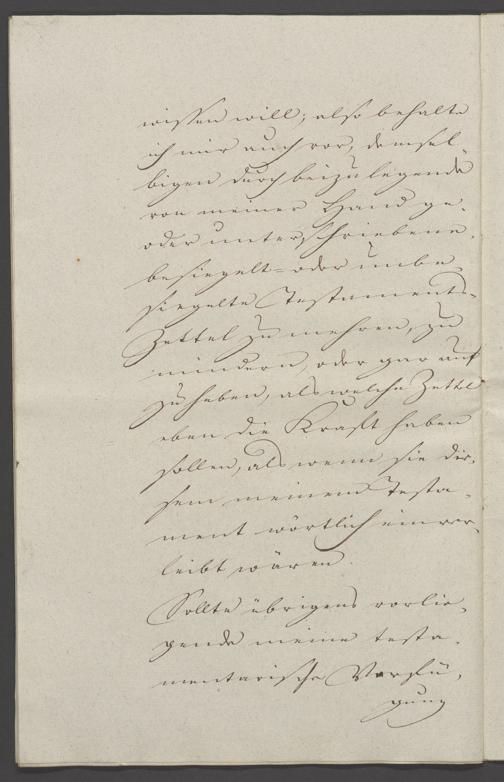 wissen will; also behalte
ich mir auch vor, demsel-
bigen durch beizulegende
von meiner Hand ge-
oder unterschriebene,
besiegelt= oder unbe-
siegelte Testaments-
Zettel zu mehren, zu
mindern, oder gar auf
zu heben, als welche Zettel
eben die Kraft haben
sollen, als wenn sie die-
sem meinem Testa-
ment wörtlich einver-
leibt wären.
Sollte übrigens vorlie-
gende meine testa-
mentarische Verfü-
gung